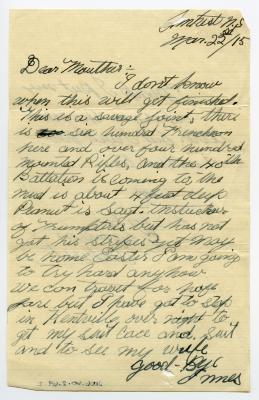 Amherst N.S
Mar. 22nd /15
Dear Mouther:-
I don't know
when this will get finished.
This is a savage joint, there
is six hundred Frenchmen
here and over four hundred
Mounted Rifles, and the 40ith
Battalion is coming to, the
mud is about 4 feet deep
is Sagt. Instructor
of Trumpters but has not
got his stripes yet may
be home Easter I am going
to try hard anyhow
we can travel for half
fare but I have got to stop
in Kentville over night to
get my suit cace and suit
and to see my wife
Good-Bye